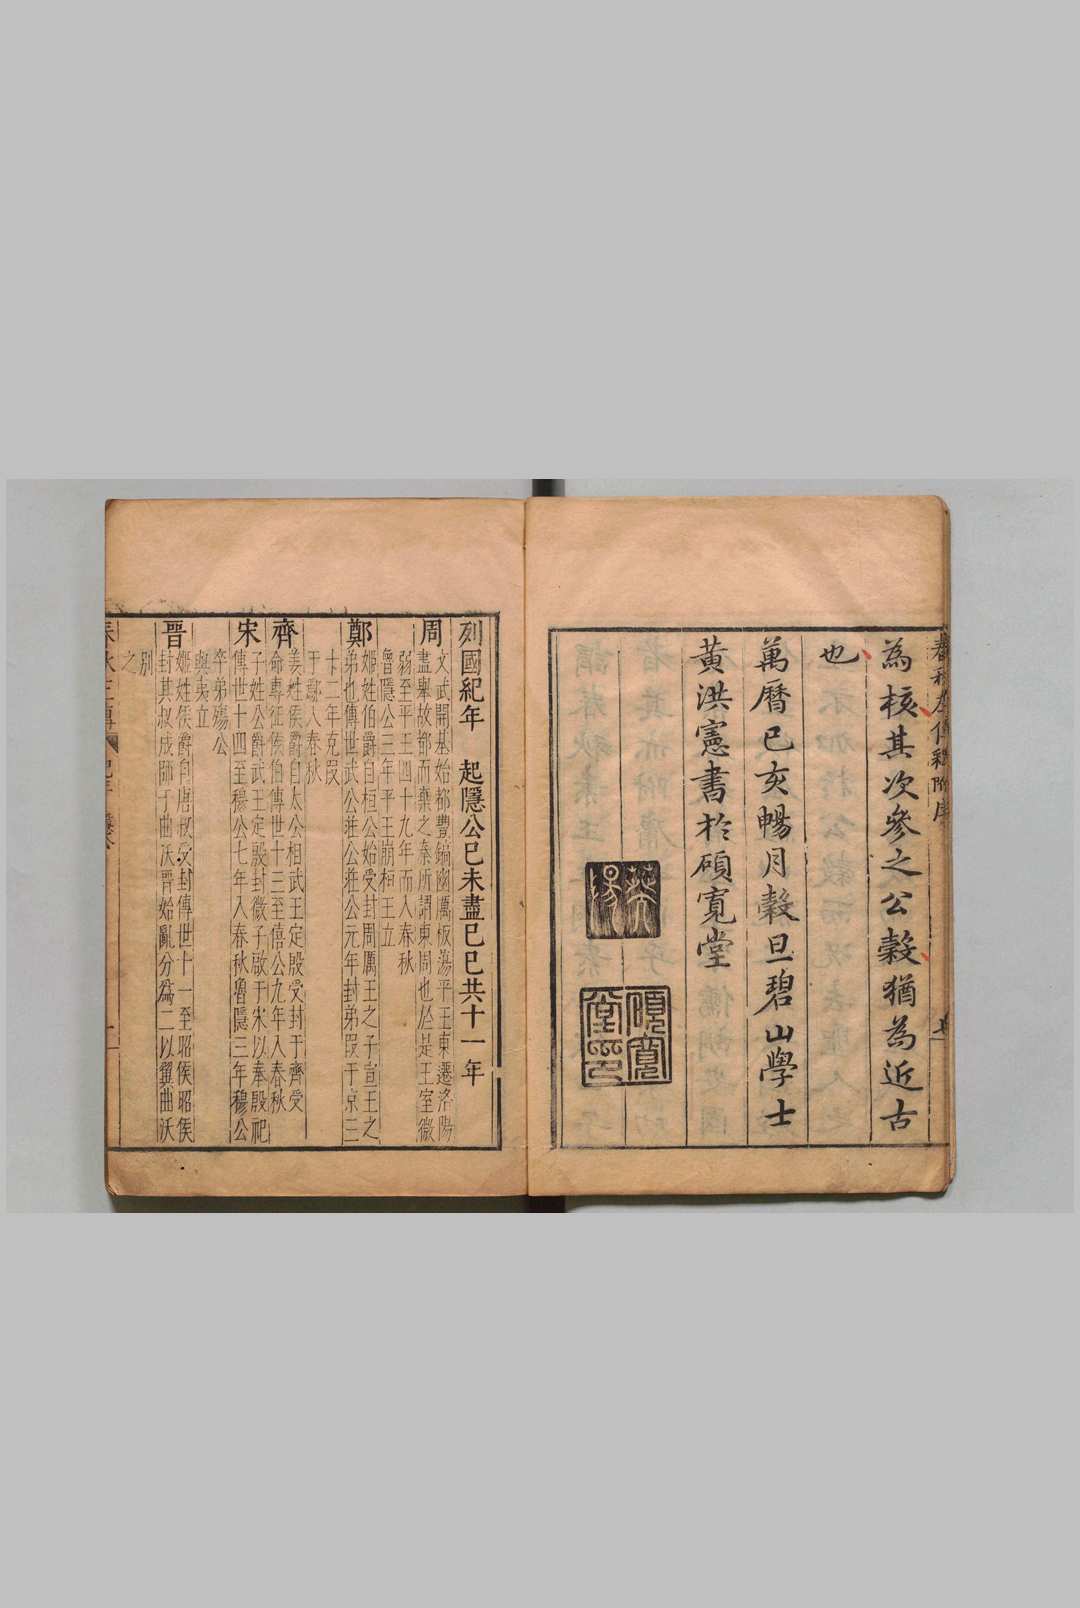 為核其次參之公穀猶為近古
也
萬曆己亥暢月穀旦碧山學士
黃洪憲書於碩寬堂
葵陽
碩寬堂印
列國紀年 起隱公己未盡己巳共十一年
周
文武開基始都豐鎬幽厲板蕩平王東遷洛陽
盡舉故都而棄之秦所謂東周也於是王室微
弱至平王四十九年而入春秋
魯隱公三年平王崩桓王立
鄭
姬姓伯爵自桓公始受封周厲王之子宣王之
弟也傳世武公莊公莊公元年封弟段于京二
十二年克段
于鄢入春秋
齊
姜姓侯爵自太公相武王定殷受封于齊受
命專征侯伯傳世十三至僖公九年入春秋
宋
子姓公爵武王定殷封微子啟于宋以奉殷祀
傳世十四至穆公七年入春秋魯隱三年穆公
卒弟殤公
與夷立
晉
姬姓侯爵自唐叔受封傳世十一至昭侯昭侯
封其叔成師于曲沃晉始亂分為二以翼曲沃
別
之